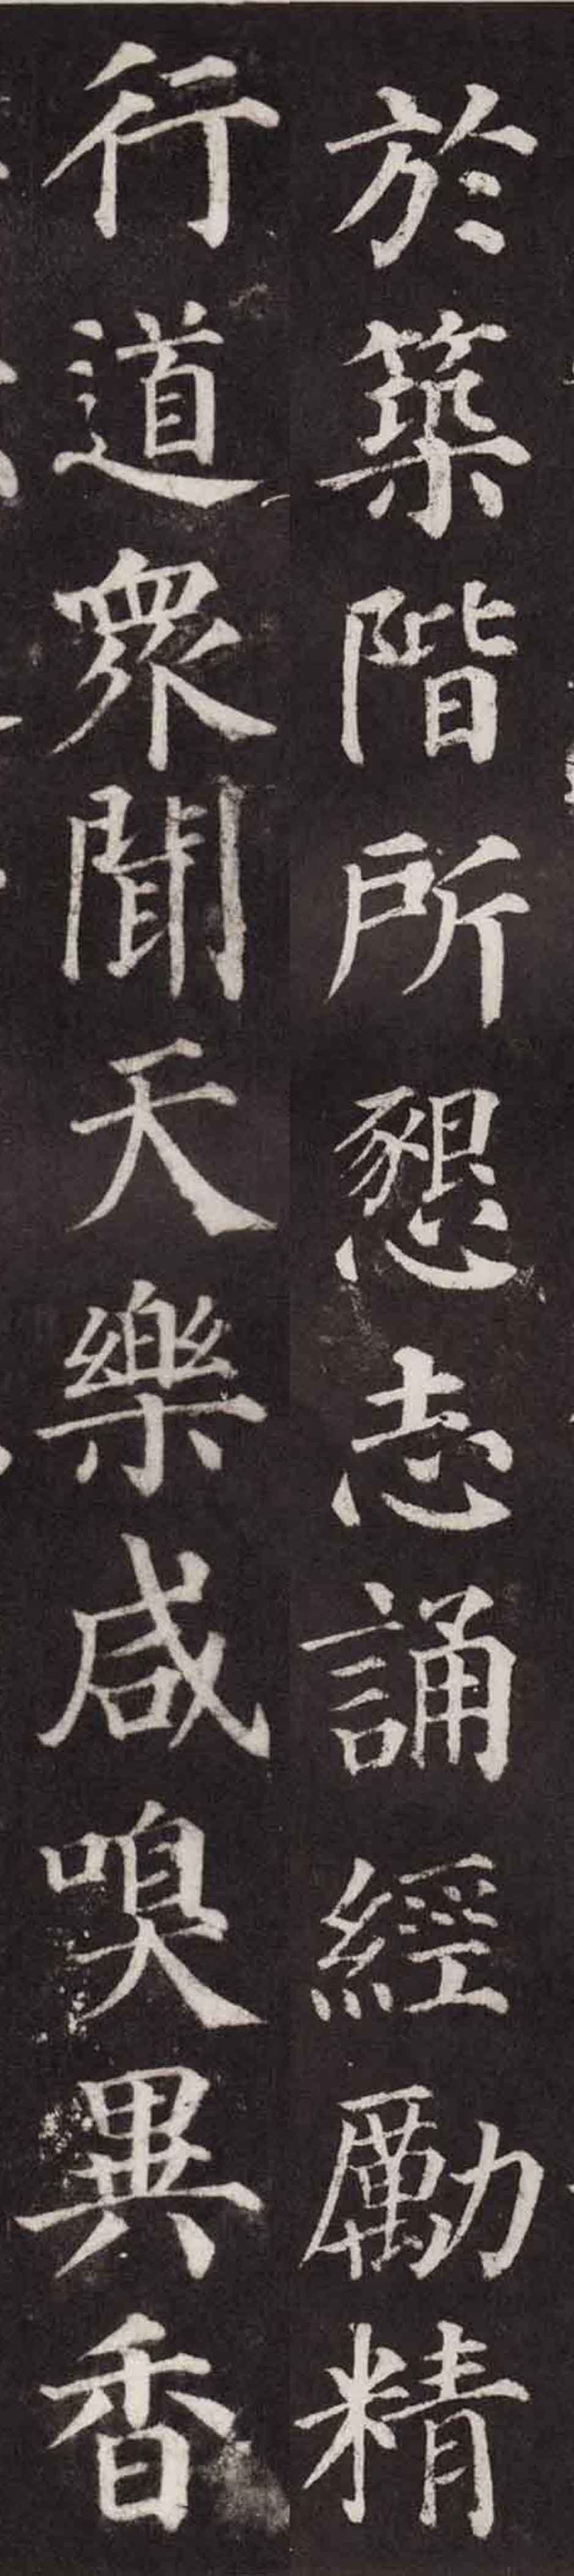 於築階所懇志誦經勵精
行道眾聞天樂咸嗅異香